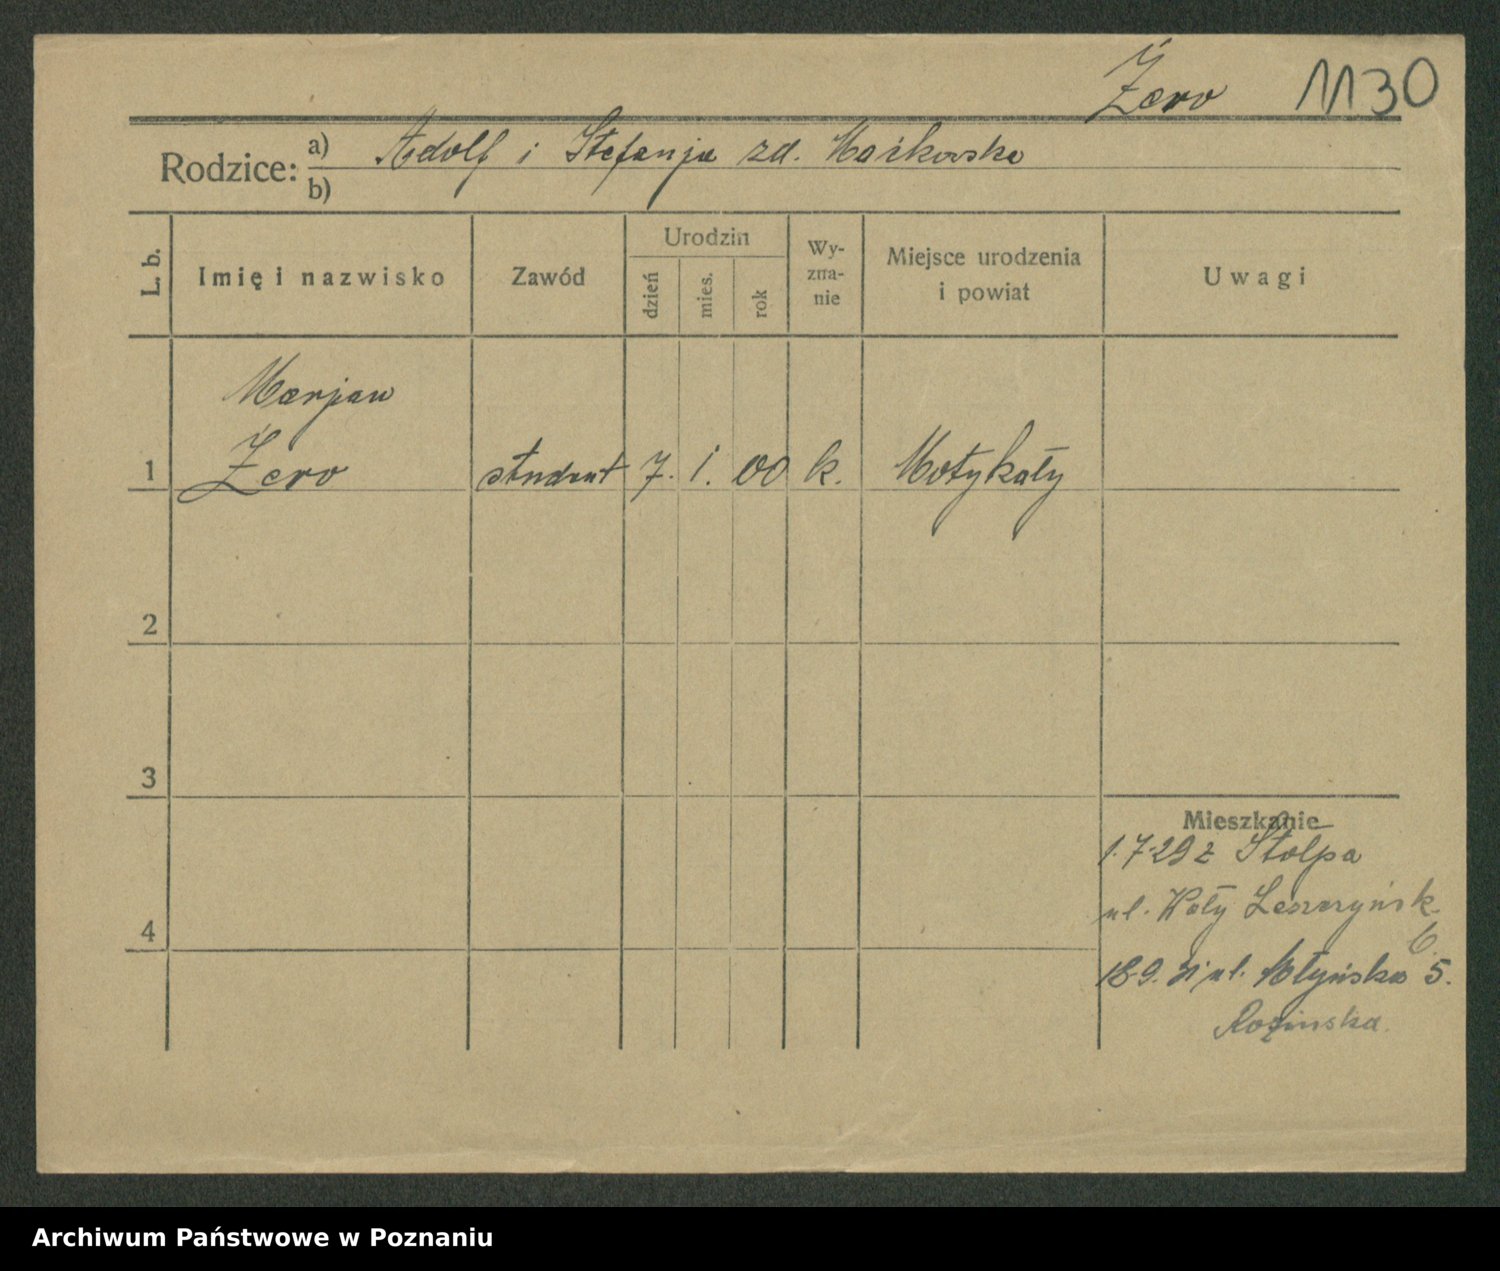 Żero 1130
Rodzice: a) Adolf i Stefanja zd. Maćkowska
b)
L. b. Imię i nazwisko Zawód Urodzin dzień mies. rok Wy-zna-nie Miejsce urodzenia i powiat Uwagi
Marjan
1 Żero student 7. 1. 00 k. Motykały
2
3
4
Mieszkanie
1.7.29 z Stolpa
ul. Wały Leszczyńsk.
6.
18.9.31 ul. Młyńska 5.
Archiwum Państwowe w Poznaniu